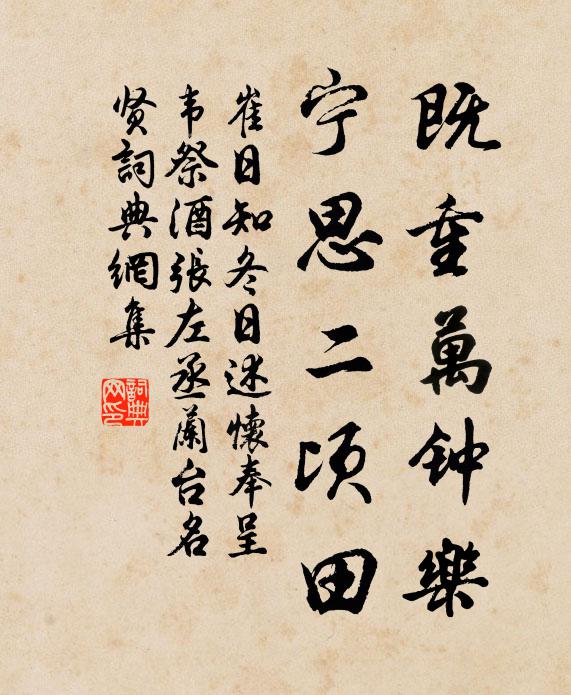 既重萬钟樂
宁思二顷田
崔日知冬日述懷奉呈
韦祭酒張左丞蘭台名
贤詞典網集
詞典
网印